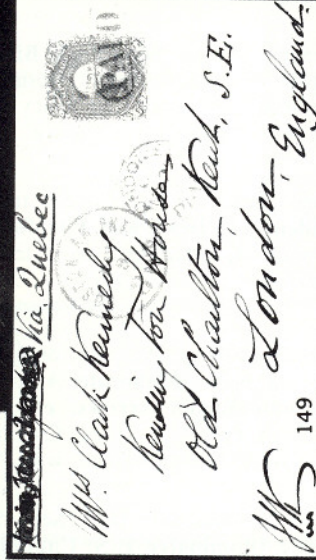 Via Quebec
PAID
Mrs Clark Kennedy
Kensington House
Old Charlton, Kent, S.E.
London, England.
149